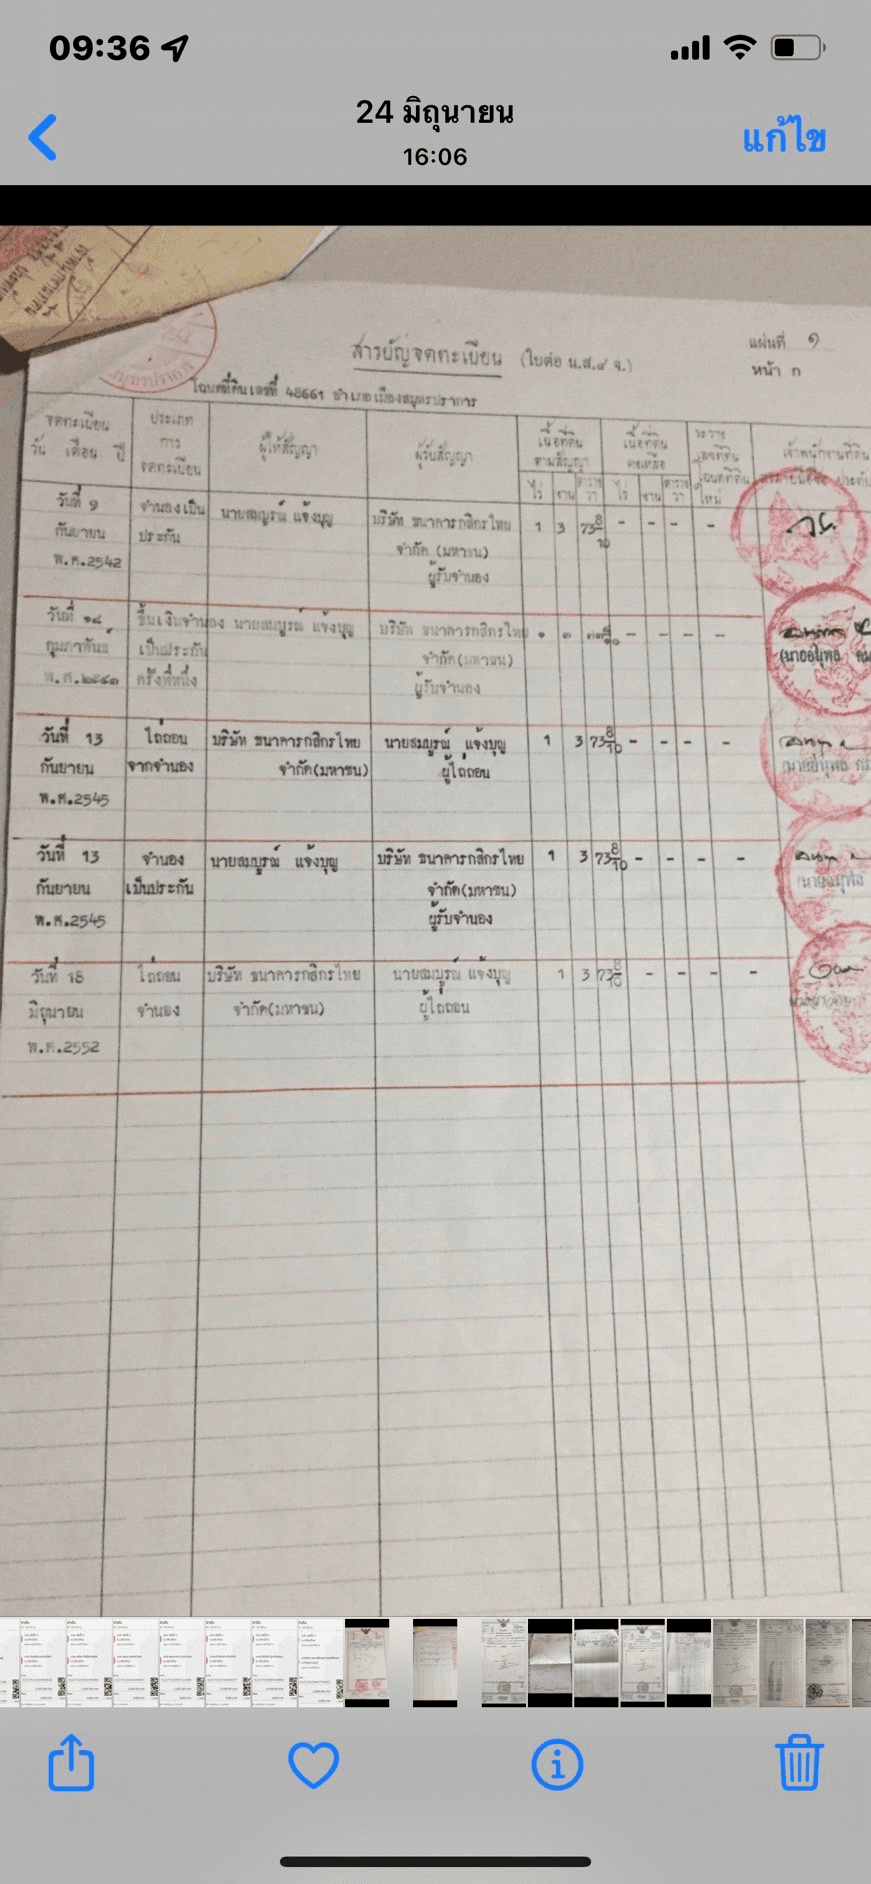 09:36
24 มิถุนายน
16:06
แก้ไข
สารบัญจดทะเบียน (ใบต่อ น.ส.๔ จ.)
แผ่นที่ ๑
หน้า ก
โฉนดที่ดินเลขที่ 48661 อำเภอเมืองสมุทรปราการ
จดทะเบียน วัน เดือน ปี
ประเภทการจดทะเบียน
ผู้ให้สัญญา
ผู้รับสัญญา
เนื้อที่ดินตามสัญญา
ไร่ งาน ตารางวา
เนื้อที่ดินคงเหลือ
ไร่ งาน ตารางวา
ระวาง เลขที่ดิน โฉนดที่ดินใหม่
เจ้าพนักงานที่ดิน
วันที่ 9 จำนองเป็น นายสมบูรณ์ แจ้งบุญ บริษัท ธนาคารกสิกรไทย 1 3 73 8/10 - - - -
กันยายน ประกัน จำกัด (มหาชน)
พ.ศ.2542 ผู้รับจำนอง
วันที่ ๑๘ ขึ้นเงินจำนอง นายสมบูรณ์ แจ้งบุญ บริษัท ธนาคารกสิกรไทย ๑ ๓ ๗๓ ๘/๑๐ - - - -
กุมภาพันธ์ เป็นประกัน จำกัด(มหาชน)
พ.ศ.๒๕๔๓ ครั้งที่หนึ่ง ผู้รับจำนอง
วันที่ 13 ไถ่ถอน บริษัท ธนาคารกสิกรไทย นายสมบูรณ์ แจ้งบุญ 1 3 73 8/10 - - - -
กันยายน จากจำนอง จำกัด(มหาชน) ผู้ไถ่ถอน
พ.ศ.2545
วันที่ 13 จำนอง นายสมบูรณ์ แจ้งบุญ บริษัท ธนาคารกสิกรไทย 1 3 73 8/10 - - - -
กันยายน เป็นประกัน จำกัด(มหาชน)
พ.ศ.2545 ผู้รับจำนอง
วันที่ 18 ไถ่ถอน บริษัท ธนาคารกสิกรไทย นายสมบูรณ์ แจ้งบุญ 1 3 73 8/10 - - - -
มิถุนายน จำนอง จำกัด(มหาชน) ผู้ไถ่ถอน
พ.ศ.2552